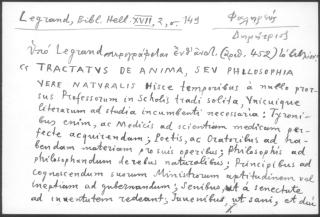 Legrand, Bibl. Hell. XVII, 2, σ. 149
Δημήτριος
ὑπὸ Legrand περιγράφεται ἐνθ' ἀνωτ. (ἀριθ. 452) τὸ βιβλίον
"TRACTATVS DE ANIMA, SEV PHILOSOPHIA
VERE NATVRALIS Hisce temporibus a nullo pror-
sus Professorum in Scholis tradi solita, Unicuique
literarum ad studia incumbenti necessaria: Tyroni-
bus enim, ac Medicis ad scientiam medicam per-
fecte acquirendam; Poetis, ac Oratoribus ad ha-
bendam materiam prosuis operibus; Philosophis ad
philosophandum de rebus naturalibus; Principibus ad
cognoscendum suorum Ministrorum aptitudinem vel
ineptiam ad gubernandum; Senibus, ut a senectute
ad iuventutem redeant, Iuvenibus, ut sani, et diu